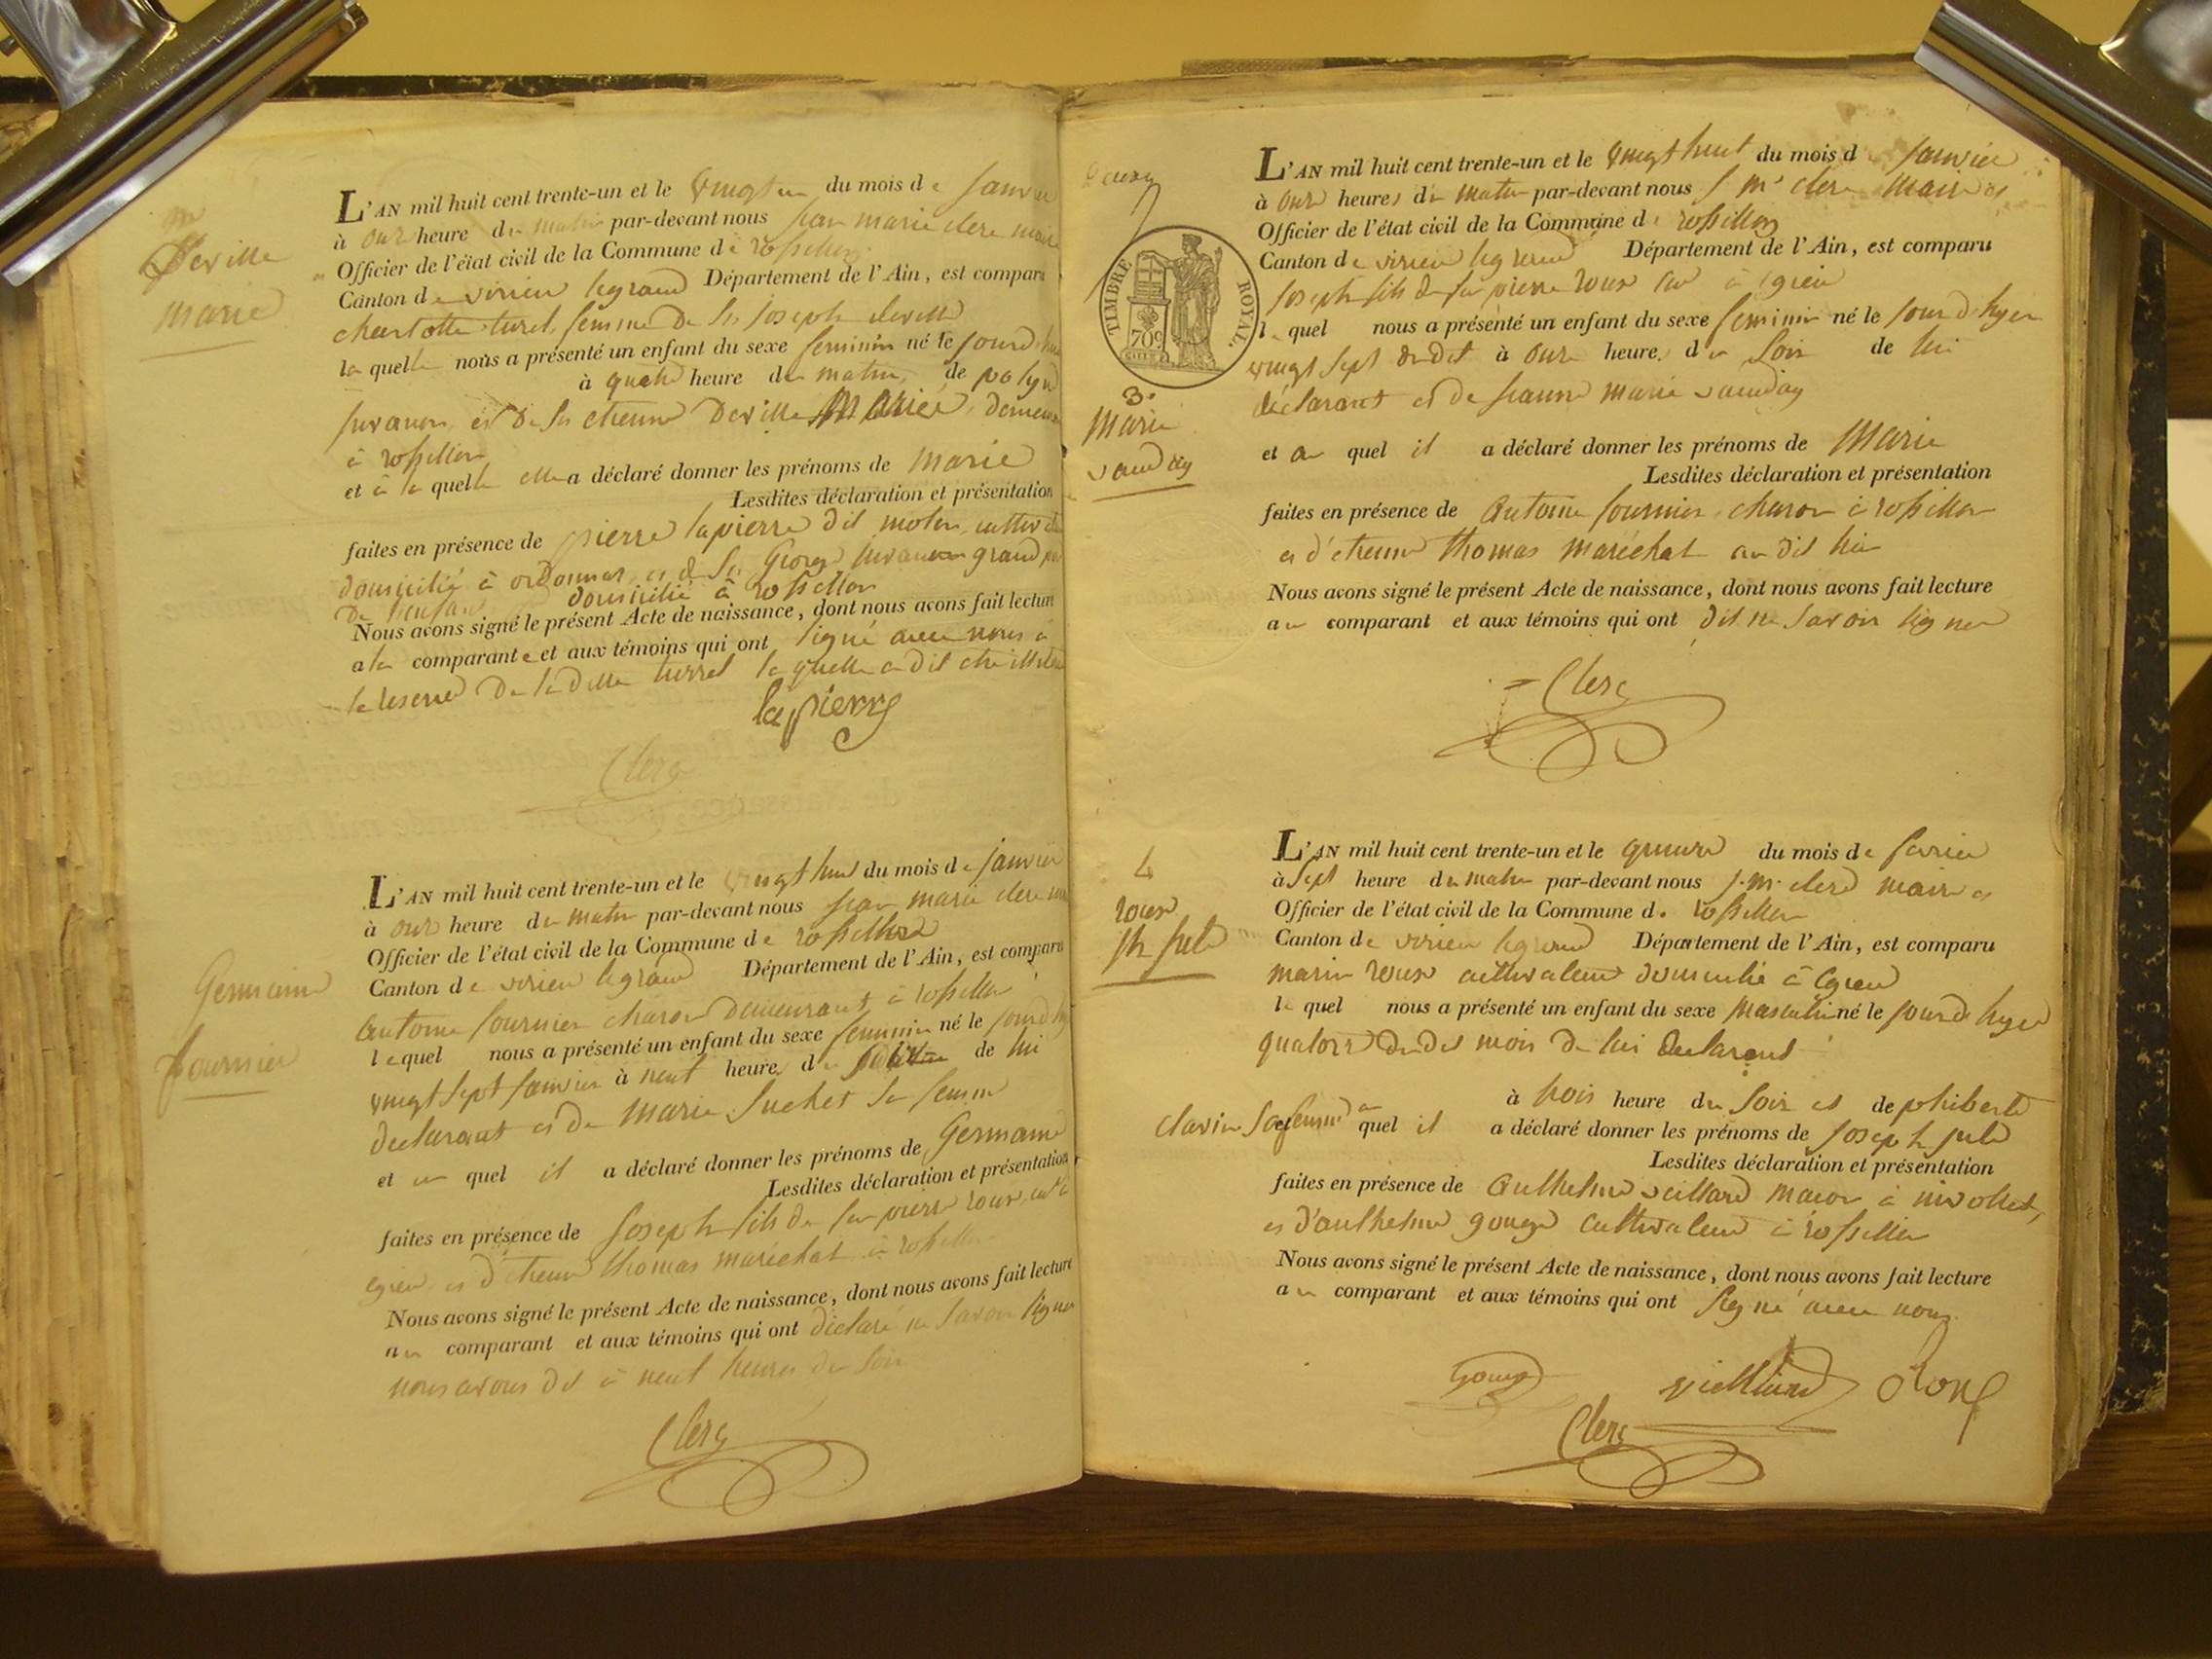 Deville
marie
L'AN mil huit cent trente-un et le vingt un du mois de janvier
à onze heure du matin par-devant nous jean marie clerc maire
Officier de l'état civil de la Commune de rossillon
Canton de virieu legrand Département de l'Ain, est comparu
charlotte turel femme de joseph deville
la quelle nous a présenté un enfant du sexe feminin né le jourd'hui
à quatre heure du matin, de
et de etienne Deville Mariée,
à rossillon
et à la quelle elle a déclaré donner les prénoms de marie
Lesdites déclaration et présentation
faites en présence de pierre lapierre dit
domicilié à ordonnas, et de grand
De l'enfant domicilié à rossillon
Nous avons signé le présent Acte de naissance, dont nous avons fait lecture
a la comparante et aux témoins qui ont signé avec nous à
la reserve De la ditte turrel la quelle a dit etre
lapierre
Clerc
Germaine
fournier
L'AN mil huit cent trente-un et le vingt huit du mois de janvier
à onze heure du matin par-devant nous jean marie clerc
Officier de l'état civil de la Commune de rossillon
Canton de virieu legrand Département de l'Ain, est comparu
antoine fournier charon demeurant à rossillon
lequel nous a présenté un enfant du sexe feminin né le jourd'hyer
vingt sept janvier à neuf heure du de lui
declarant et de Marie Suchet sa femme
et au quel il a déclaré donner les prénoms de Germaine
Lesdites déclaration et présentation
faites en présence de joseph fils de feu pierre roux
et d'etienne thomas maréchal à rossillon
Nous avons signé le présent Acte de naissance, dont nous avons fait lecture
au comparant et aux témoins qui ont déclaré ne savoir signer
nous avons dit à neuf heures du soir
Clerc
TIMBRE ROYAL
70c
3.
Marie
L'AN mil huit cent trente-un et le vingt huit du mois d janvier
à onze heures du matin par-devant nous j m clerc Maire et
Officier de l'état civil de la Commune de rossillon
Canton de virieu legrand Département de l'Ain, est comparu
joseph fils de feu pierre roux à
le quel nous a présenté un enfant du sexe feminin né le jour d'hyer
vingt sept dudit à onze heure, du soir de lui
déclarant et de jeanne marie
et au quel il a déclaré donner les prénoms de Marie
Lesdites déclaration et présentation
faites en présence de antoine fournier charon à rossillon
et d'etienne thomas maréchal au dit lieu
Nous avons signé le présent Acte de naissance, dont nous avons fait lecture
au comparant et aux témoins qui ont dit ne savoir signer
Clerc
4
roux
jh jule
L'AN mil huit cent trente-un et le quinze du mois de
à sept heure du matin par-devant nous j. m. clerc maire et
Officier de l'état civil de la Commune de rossillon
Canton de virieu legrand Département de l'Ain, est comparu
marin roux cultivateur domicilié à
le quel nous a présenté un enfant du sexe masculin né le jour d'hyer
quatorze dudit mois de lui declarant
à trois heure du soir et de philiberte
clavin sa femme au quel il a déclaré donner les prénoms de joseph jule
Lesdites déclaration et présentation
faites en présence de anthelme macon à
et d'anthelme gouge cultivateur à rossillon
Nous avons signé le présent Acte de naissance, dont nous avons fait lecture
au comparant et aux témoins qui ont signé avec nous
Gouge
Clerc